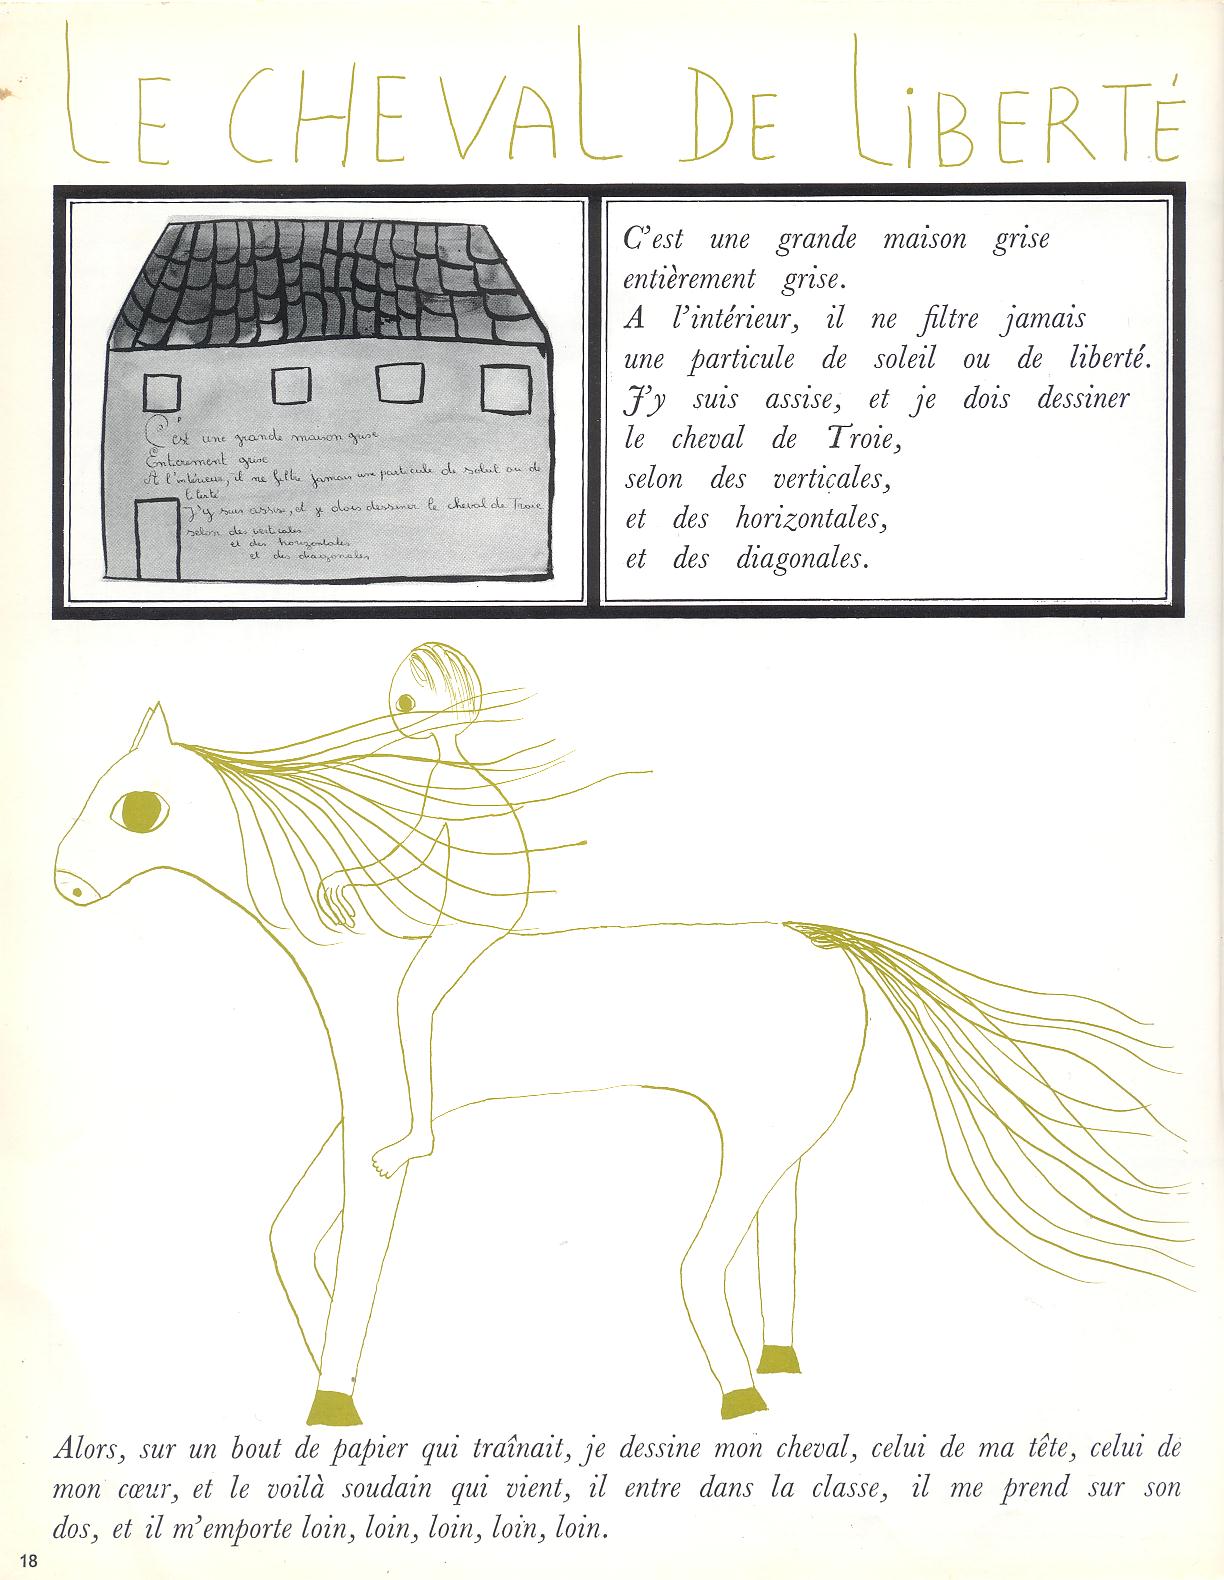 LE CHEVAL DE LiBERTÉ
C'est une grande maison grise
Entièrement grise
A l'intérieur, il ne filtre jamais une particule de soleil ou de
liberté
J'y suis assise, et je dois dessiner le cheval de Troie
selon des verticales
et des horizontales
et des diagonales
C'est une grande maison grise
entièrement grise.
A l'intérieur, il ne filtre jamais
une particule de soleil ou de liberté.
J'y suis assise, et je dois dessiner
le cheval de Troie,
selon des verticales,
et des horizontales,
et des diagonales.
Alors, sur un bout de papier qui traînait, je dessine mon cheval, celui de ma tête, celui de
mon cœur, et le voilà soudain qui vient, il entre dans la classe, il me prend sur son
dos, et il m'emporte loin, loin, loin, loin, loin.
18